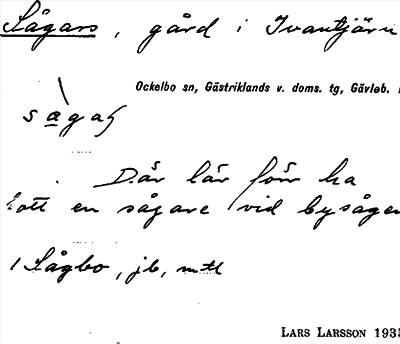 Sågars, gård i Ivantjärn
Ockelbo sn, Gästriklands v. doms. tg, Gävleb.
Där lär förr ha
bott en sågare vid bysågen
1 Sågbo, jb, mtl
LARS LARSSON 193